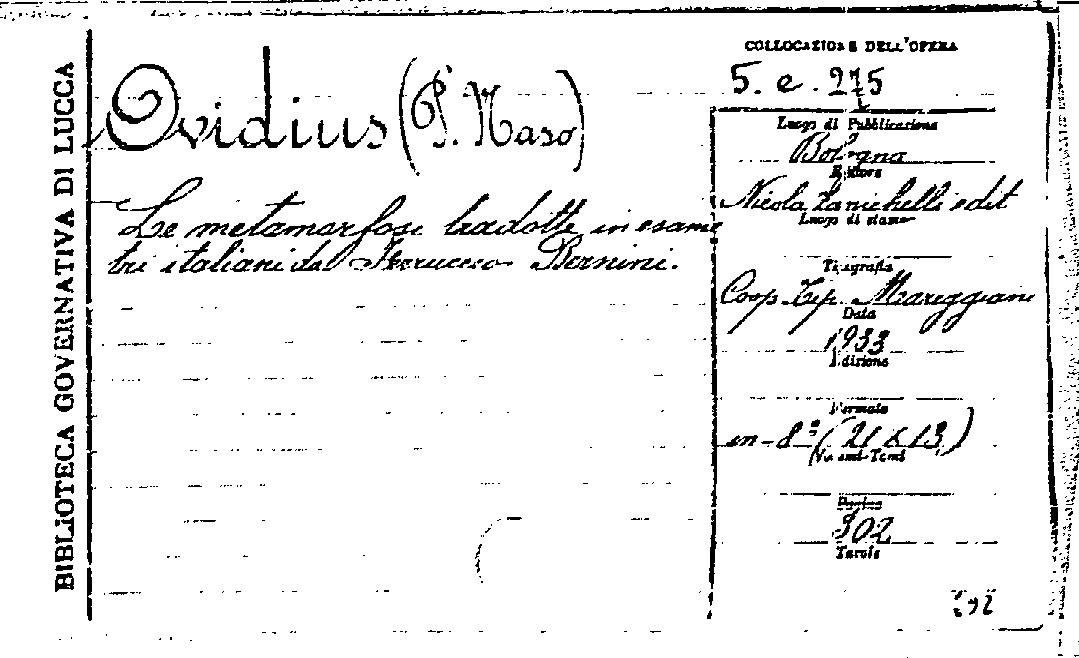 BIBLIOTECA GOVERNATIVA DI LUCCA
Ovidius (P. Naso)
Le metamorfosi tradotte in esame
tri italiani da Ferruccio Bernini.
COLLOCAZIONE DELL'OPERA
5. e. 275
Luogo di Pubblicazione
Bologna
Editore
Nicola Zanichelli edit
Luogo di stampa
Tipografia
Coop. Tip. Mareggiani
Data
1933
Edizione
Formato
in-8° (21 x 13)
Volumi-Tomi
Pagine
302
Tavole